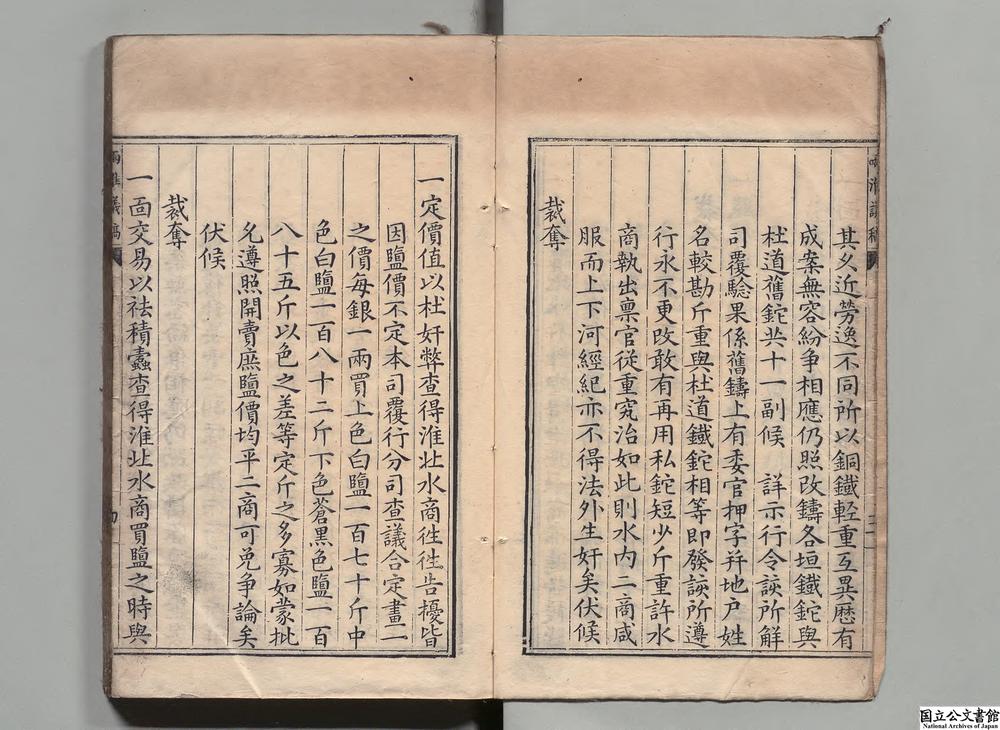 其久近勞逸不同所以銅鐵軽重互異歴有
成案無容紛争相應仍照改鑄各垣鐵鉈與
杜道舊鉈共十一副候　詳示行令該所解
司覆騐果係舊鑄上有委官押字并地户姓
名較勘斤重與杜道鐵鉈相等即發該所遵
行永不更改敢有再用私鉈短少斤重許水
商執出禀官從重究治如此則水内二商咸
服而上下河經紀亦不得法外生奸矣伏候
裁奪
一定價值以杜奸弊查得淮北水商徃徃告擾皆
因鹽價不定本司覆行分司查議合定畫一
之價每銀一兩買上色白鹽一百七十斤中
色白鹽一百八十二斤下色蒼黑色鹽一百
八十五斤以色之差等定斤之多寡如蒙批
允遵照開賣庶鹽價均平二商可免争論矣
伏候
裁奪
一面交易以祛積蠹查得淮北水商買鹽之時與
兩淮議稿
国立公文書館
National Archives of Japan